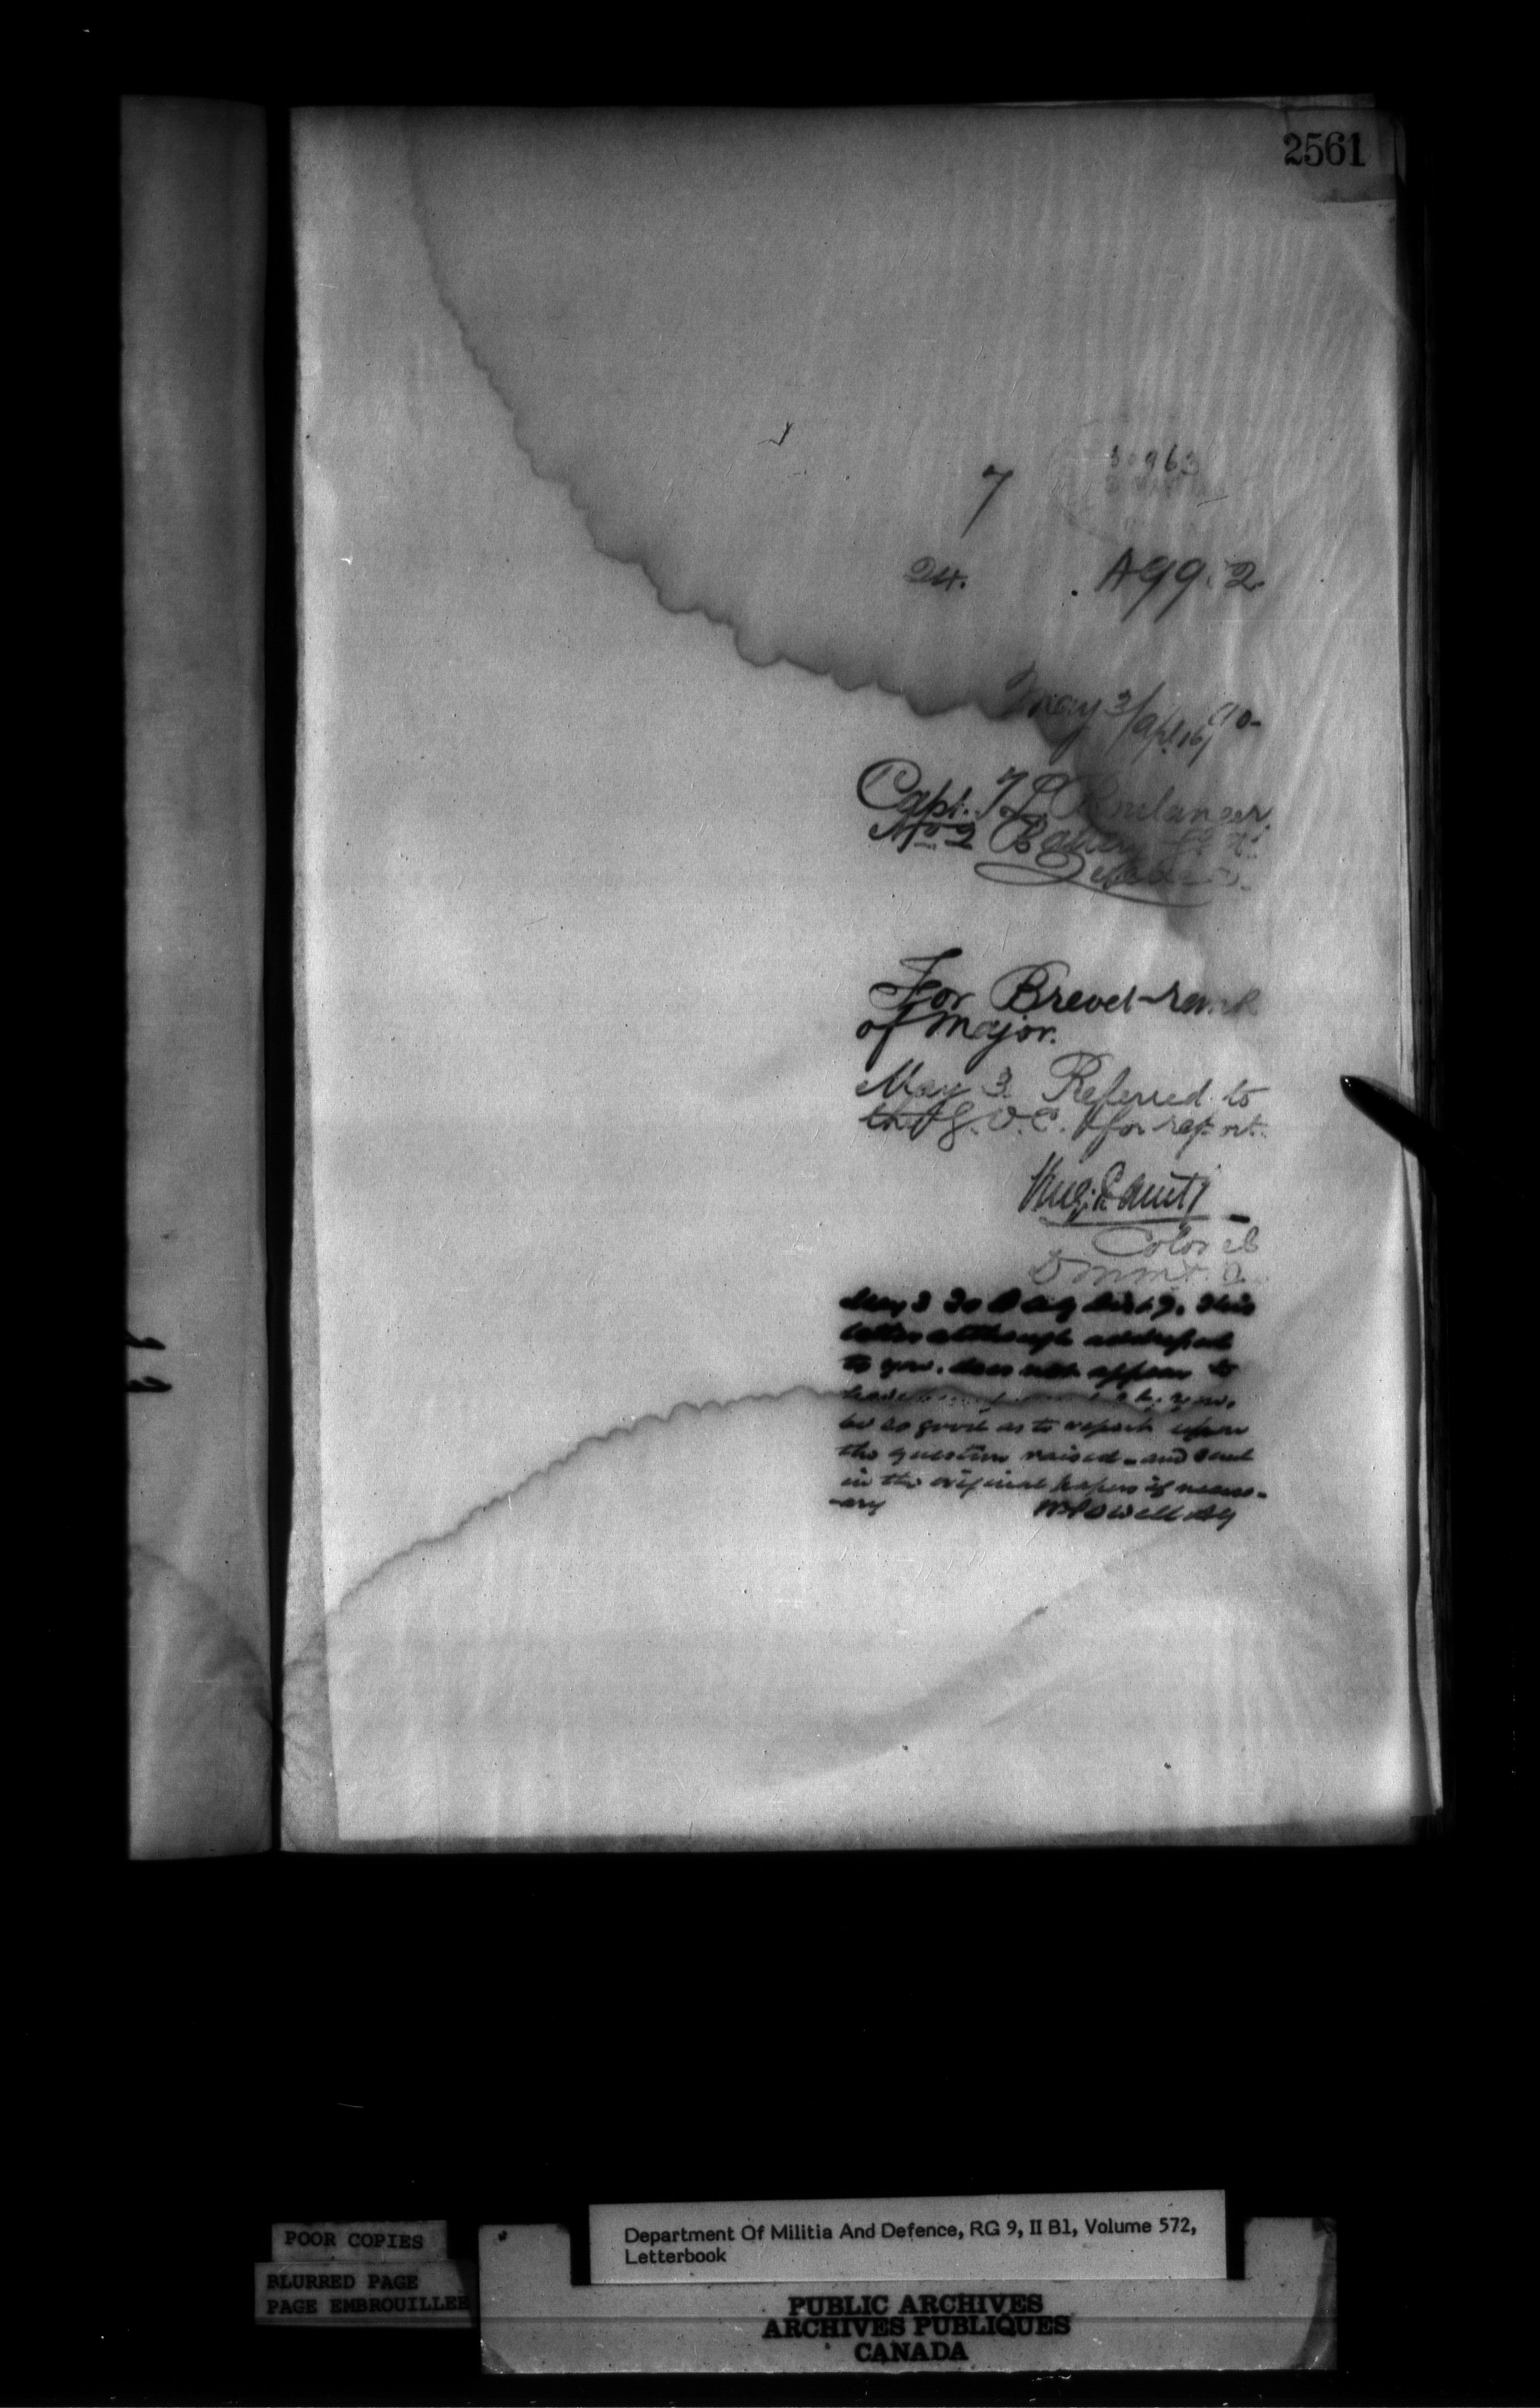 2561
7
30963
24. A99.2
May 3/Apl. 16/90-
Capt. T L Boulanger
No 2 Battery
For Brevet-rank
of Major.
May 3. Referred to
the G.O.C. for report.
Colonel
May 3 To D A G Dist 7. This
letter although addressed
to you, does not appear to
have by you,
be so good as to report upon
the question raised - and send
in the original papers if necess-
-ary W Powell AG
POOR COPIES
BLURRED PAGE
PAGE EMBROUILLEE
Department Of Militia And Defence, RG 9, II B1, Volume 572,
Letterbook
PUBLIC ARCHIVES
ARCHIVES PUBLIQUES
CANADA